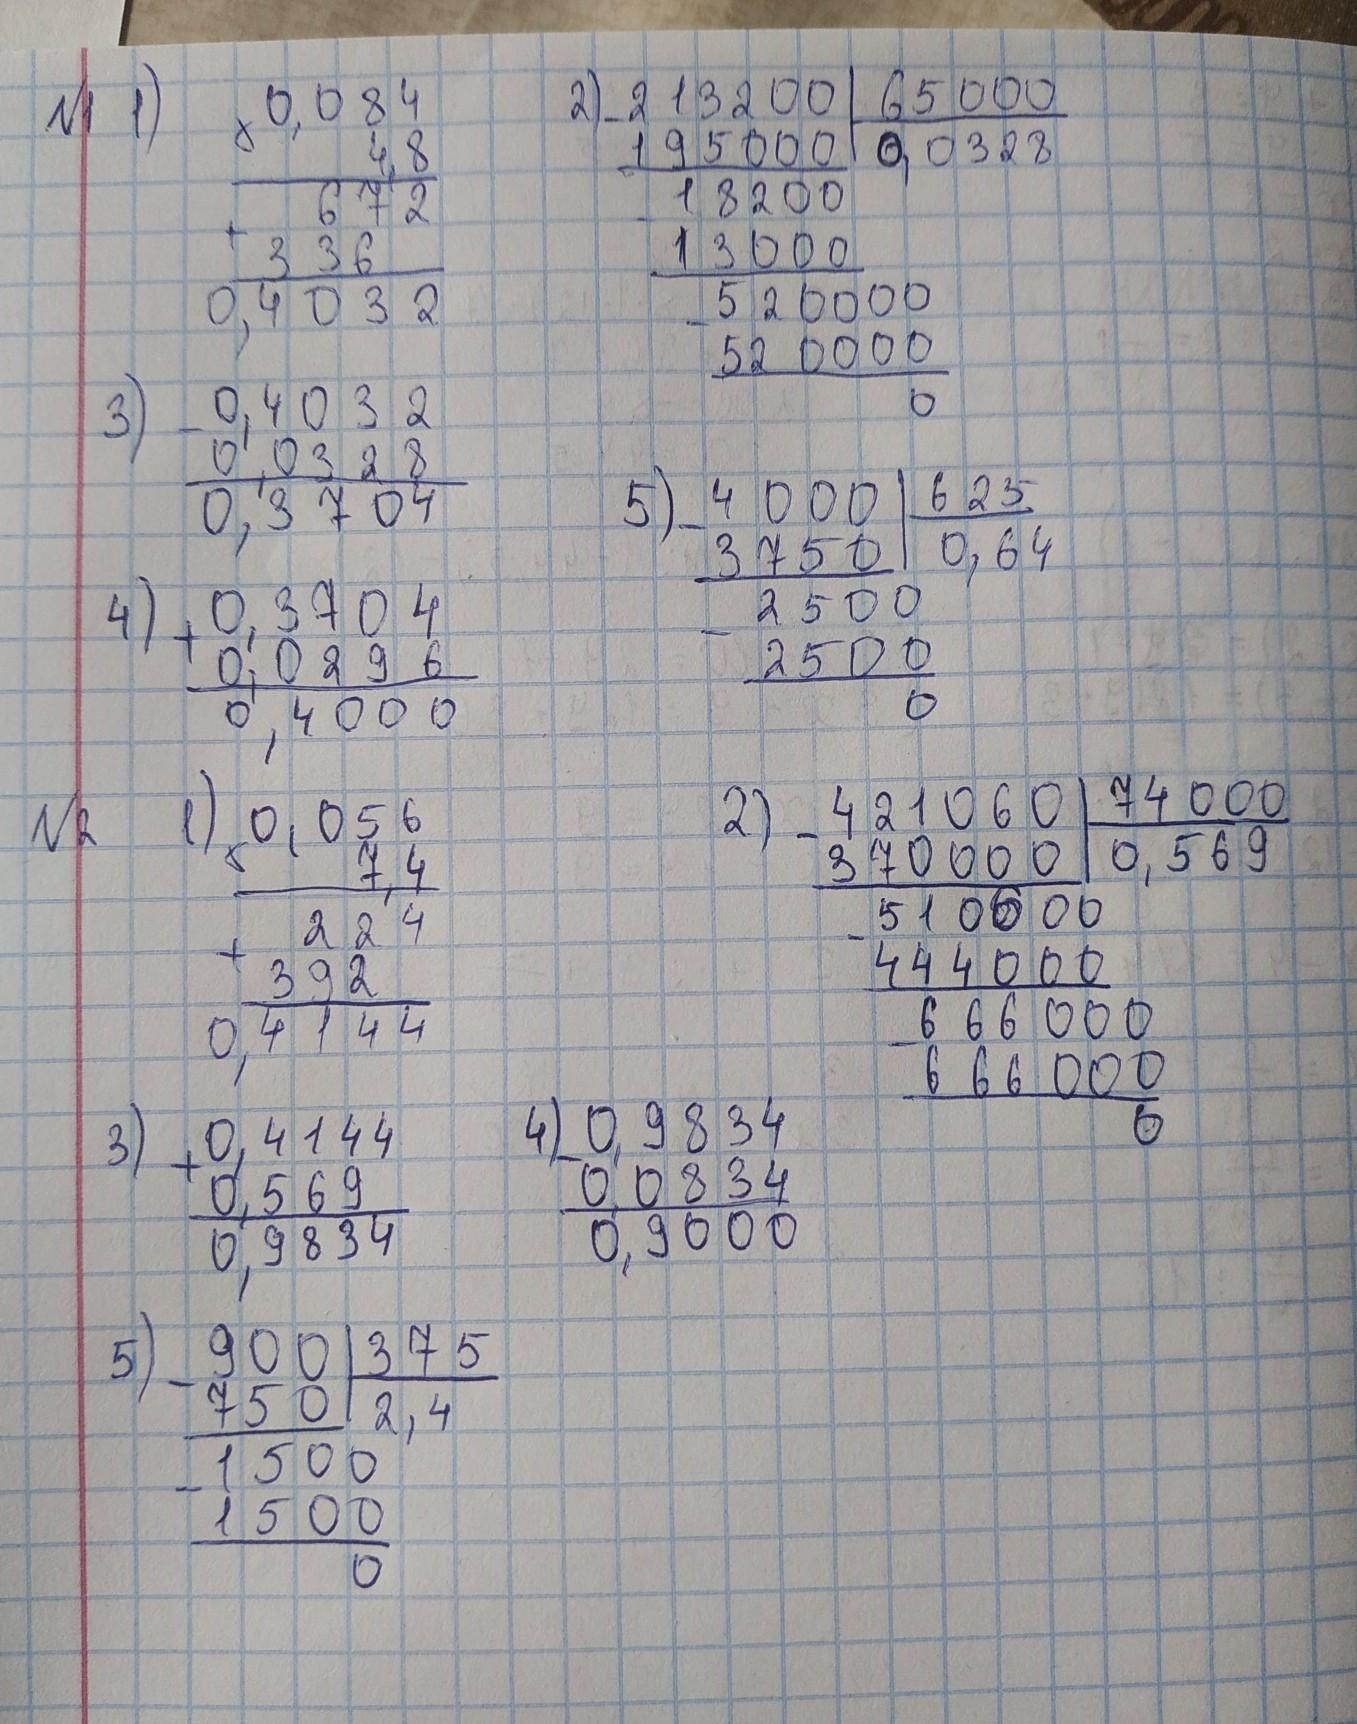 №1 1) × 0,084
4,8
+ 672
336
0,4032
2) - 213200 | 65000
195000 | 0,0328
- 18200
13000
- 520000
520000
0
3) - 0,4032
0,0328
0,3704
5) - 4000 | 625
3750 | 0,64
- 2500
2500
0
4) + 0,3704
0,0296
0,4000
№2 1) × 0,056
7,4
+ 224
392
0,4144
2) - 421060 | 74000
370000 | 0,569
- 510600
444000
- 666000
666000
0
3) + 0,4144
0,569
0,9834
4) - 0,9834
0,0834
0,9000
5) - 900 | 375
750 | 2,4
- 1500
1500
0